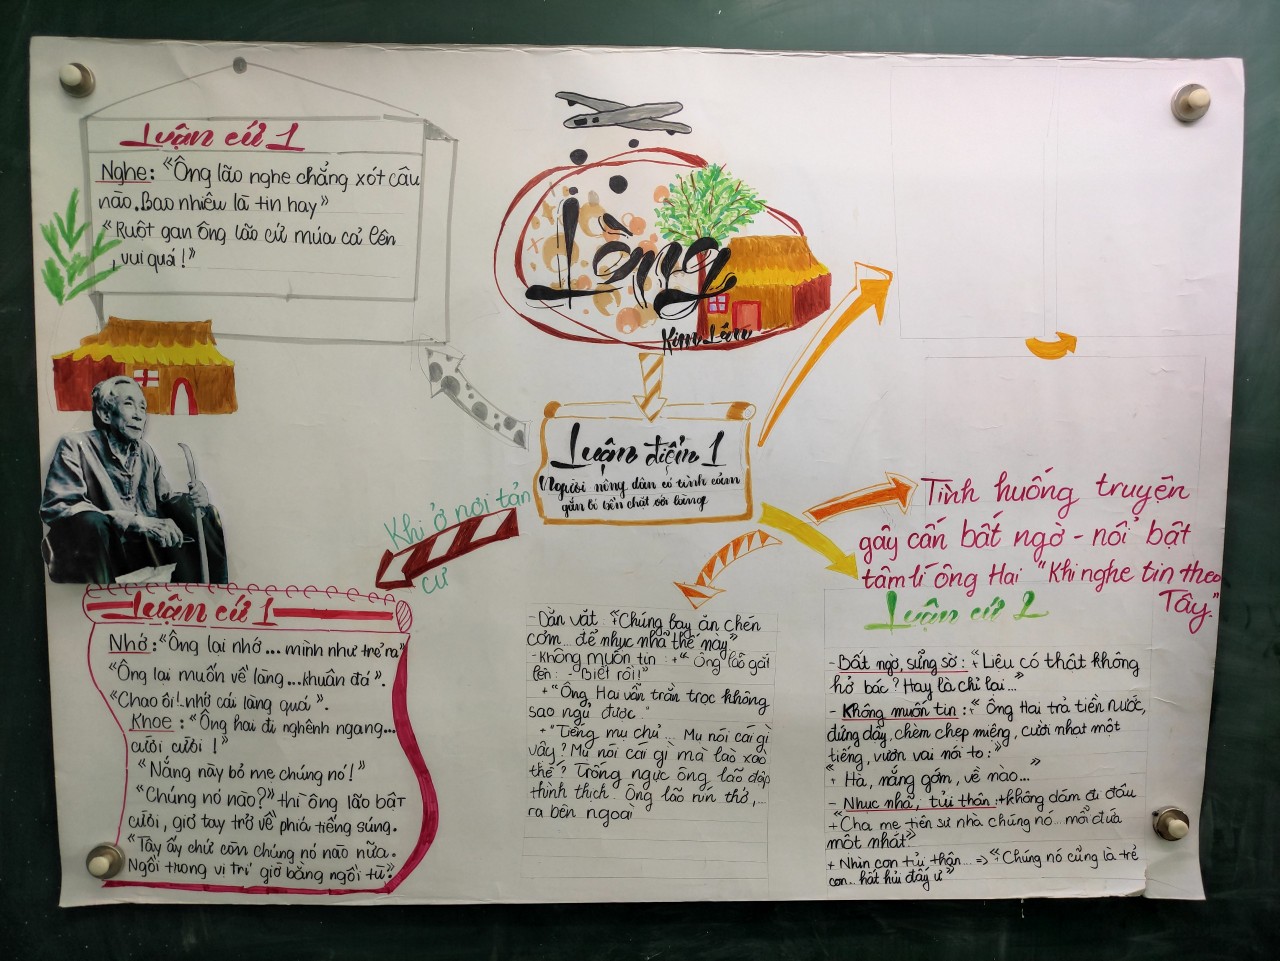 Làng
Kim Lân
Luận điểm 1
Người nông dân có tình cảm
gắn bó bền chặt với làng
Luận cứ 1
Nghe: "Ông lão nghe chẳng xót câu
nào. Bao nhiêu là tin hay"
"Ruột gan ông lão cứ múa cả lên
, vui quá!"
Khi ở nơi tản
cư
Luận cứ 1
Nhớ: "Ông lại nhớ... mình như trẻ ra"
"Ông lại muốn về làng...khuân đá".
"Chao ôi! nhớ cái làng quá".
Khoe: "Ông hai đi nghênh ngang...
cười cười!"
"Nắng này bỏ mẹ chúng nó!"
"Chúng nó nào?" thì ông lão bật
cười, giơ tay trỏ về phía tiếng súng.
"Tây ấy chứ còn chúng nó nào nữa.
Ngồi trong vị trí giờ bằng ngồi tù."
Tình huống truyện
gây cấn bất ngờ - nổi bật
tâm lí ông Hai "Khi nghe tin theo
Tây."
Luận cứ 2
- Bất ngờ, sửng sờ: + "Liệu có thật không
hở bác? Hay là chỉ lại..."
- Không muốn tin: + "Ông Hai trả tiền nước,
đứng dậy, chèm chẹp miệng, cười nhạt một
tiếng, vươn vai nói to:"
+ "Hà, nắng gớm, về nào..."
- Nhục nhã, tủi thân: + không dám đi đâu
+ "Cha mẹ tiên sư nhà chúng nó... mỗi đứa
một nhát"
+ Nhìn con tủi thận... => + "Chúng nó cũng là trẻ
con.. hắt hủi đấy ư"
- Dằn vặt: + "Chúng bay ăn chén
cơm... để nhục nhã thế này"
- Không muốn tin: + "Ông lão gắt
lên: - Biết rồi!"
+ "Ông Hai vẫn trằn trọc không
sao ngủ được."
+ "Tiếng mụ chủ... Mụ nói cái gì
vậy? Mụ nói cái gì mà lào xào
thế? Trống ngực ông lão đập
thình thịch. Ông lão nín thở,...
ra bên ngoài